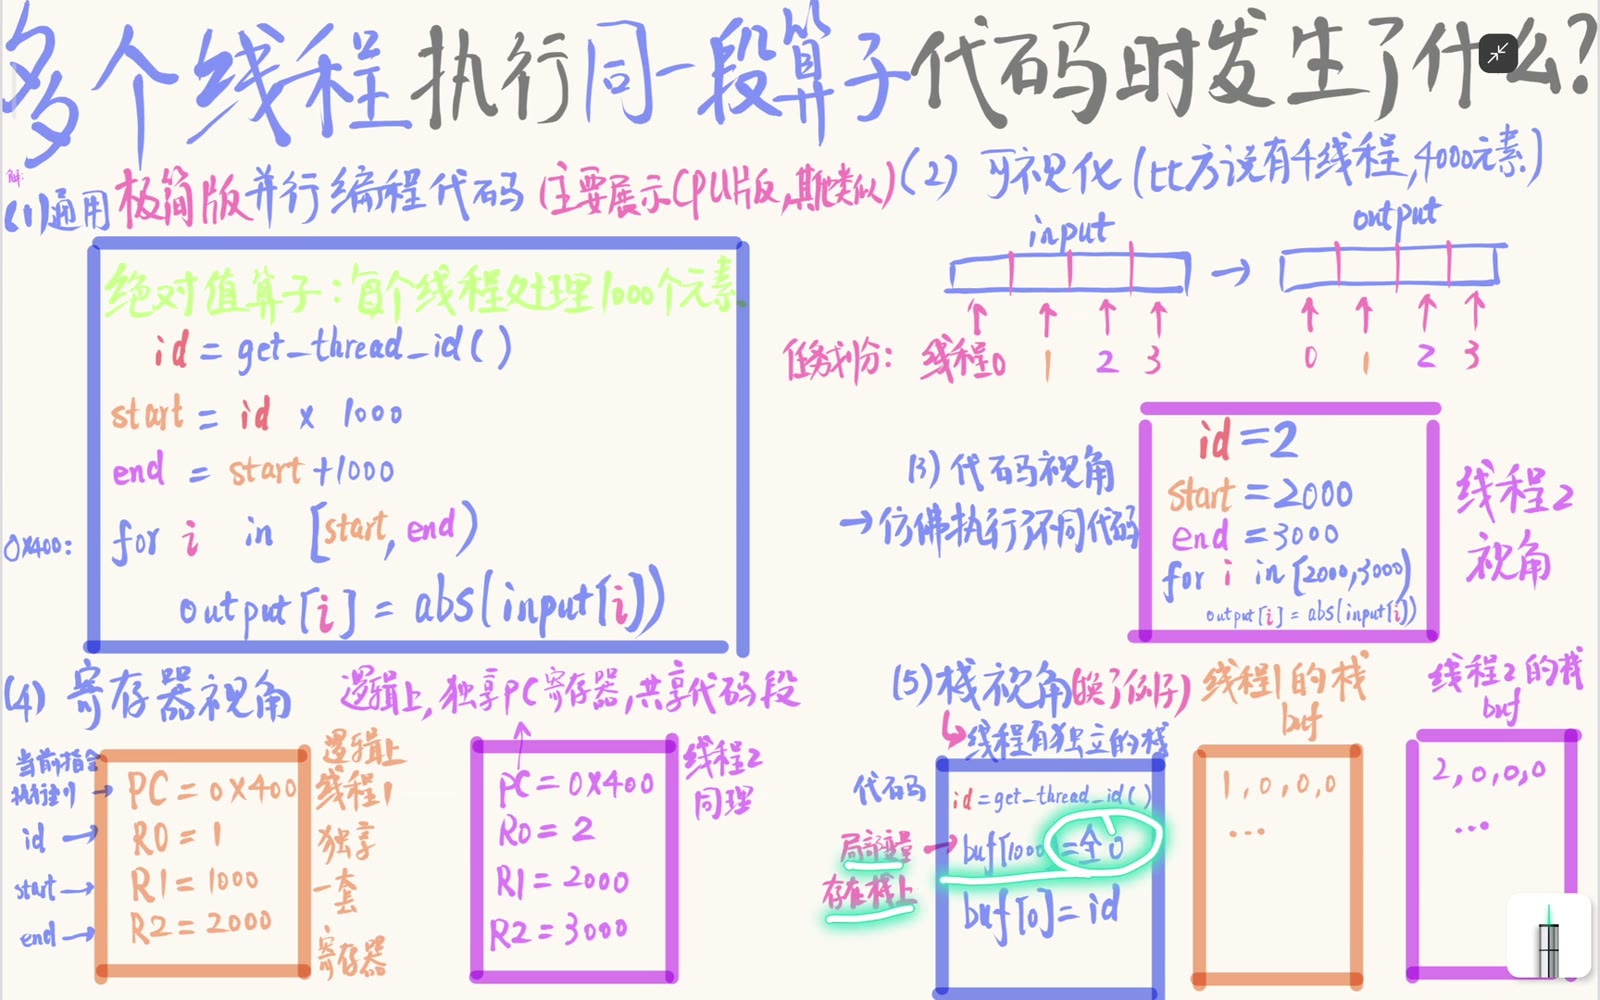 多个线程执行同一段算子代码时发生了什么?
解:
(1)通用极简版并行编程代码(主要展示CPU版,其他类似)
绝对值算子:每个线程处理1000个元素
id = get_thread_id()
start = id x 1000
end = start+1000
0x400:
for i in [start, end)
output[i] = abs(input[i])
(2) 可视化(比方说有4线程,4000元素)
input → output
任务划分: 线程0 1 2 3
0 1 2 3
(3) 代码视角
→仿佛执行了不同代码
id=2
start=2000
end=3000
for i in [2000,3000)
output[i] = abs(input[i])
线程2
视角
(4) 寄存器视角
逻辑上,独享PC寄存器,共享代码段
当前指令
执行到 →
id →
start →
end →
PC=0x400
R0=1
R1=1000
R2=2000
逻辑上
线程1
独享
一套
寄存器
PC=0x400
R0=2
R1=2000
R2=3000
线程2
同理
(5)栈视角(换了例子)
线程有独立的栈
代码
局部变量 →
存在栈上
id=get_thread_id()
buf[1000]=全0
buf[0]=id
线程1的栈
buf
1,0,0,0
...
线程2的栈
buf
2,0,0,0
...